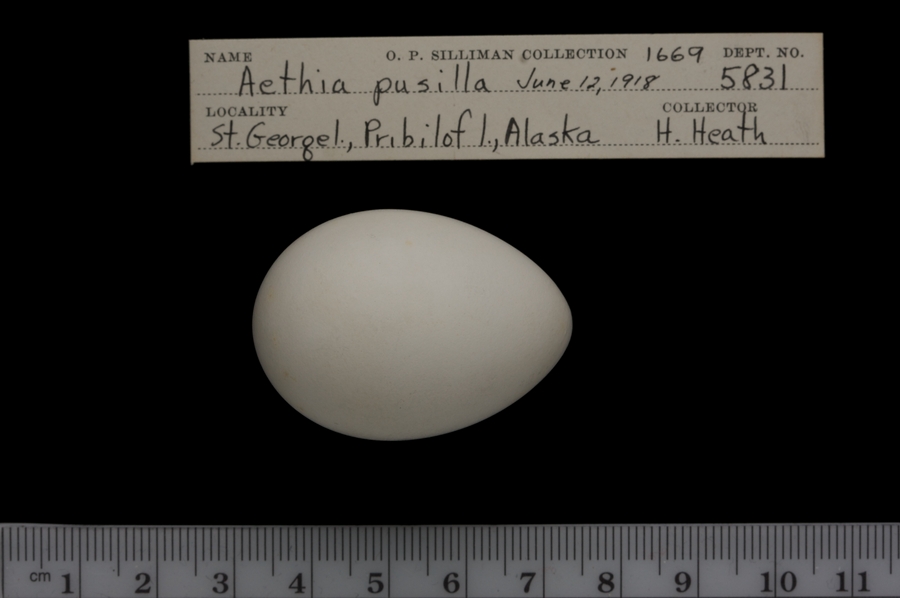 NAME O. P. SILLIMAN COLLECTION 1669 DEPT. NO.
Aethia pusilla June 12, 1918 5831
LOCALITY COLLECTOR
St. George I., Pribilof I., Alaska H. Heath
cm 1 2 3 4 5 6 7 8 9 10 11